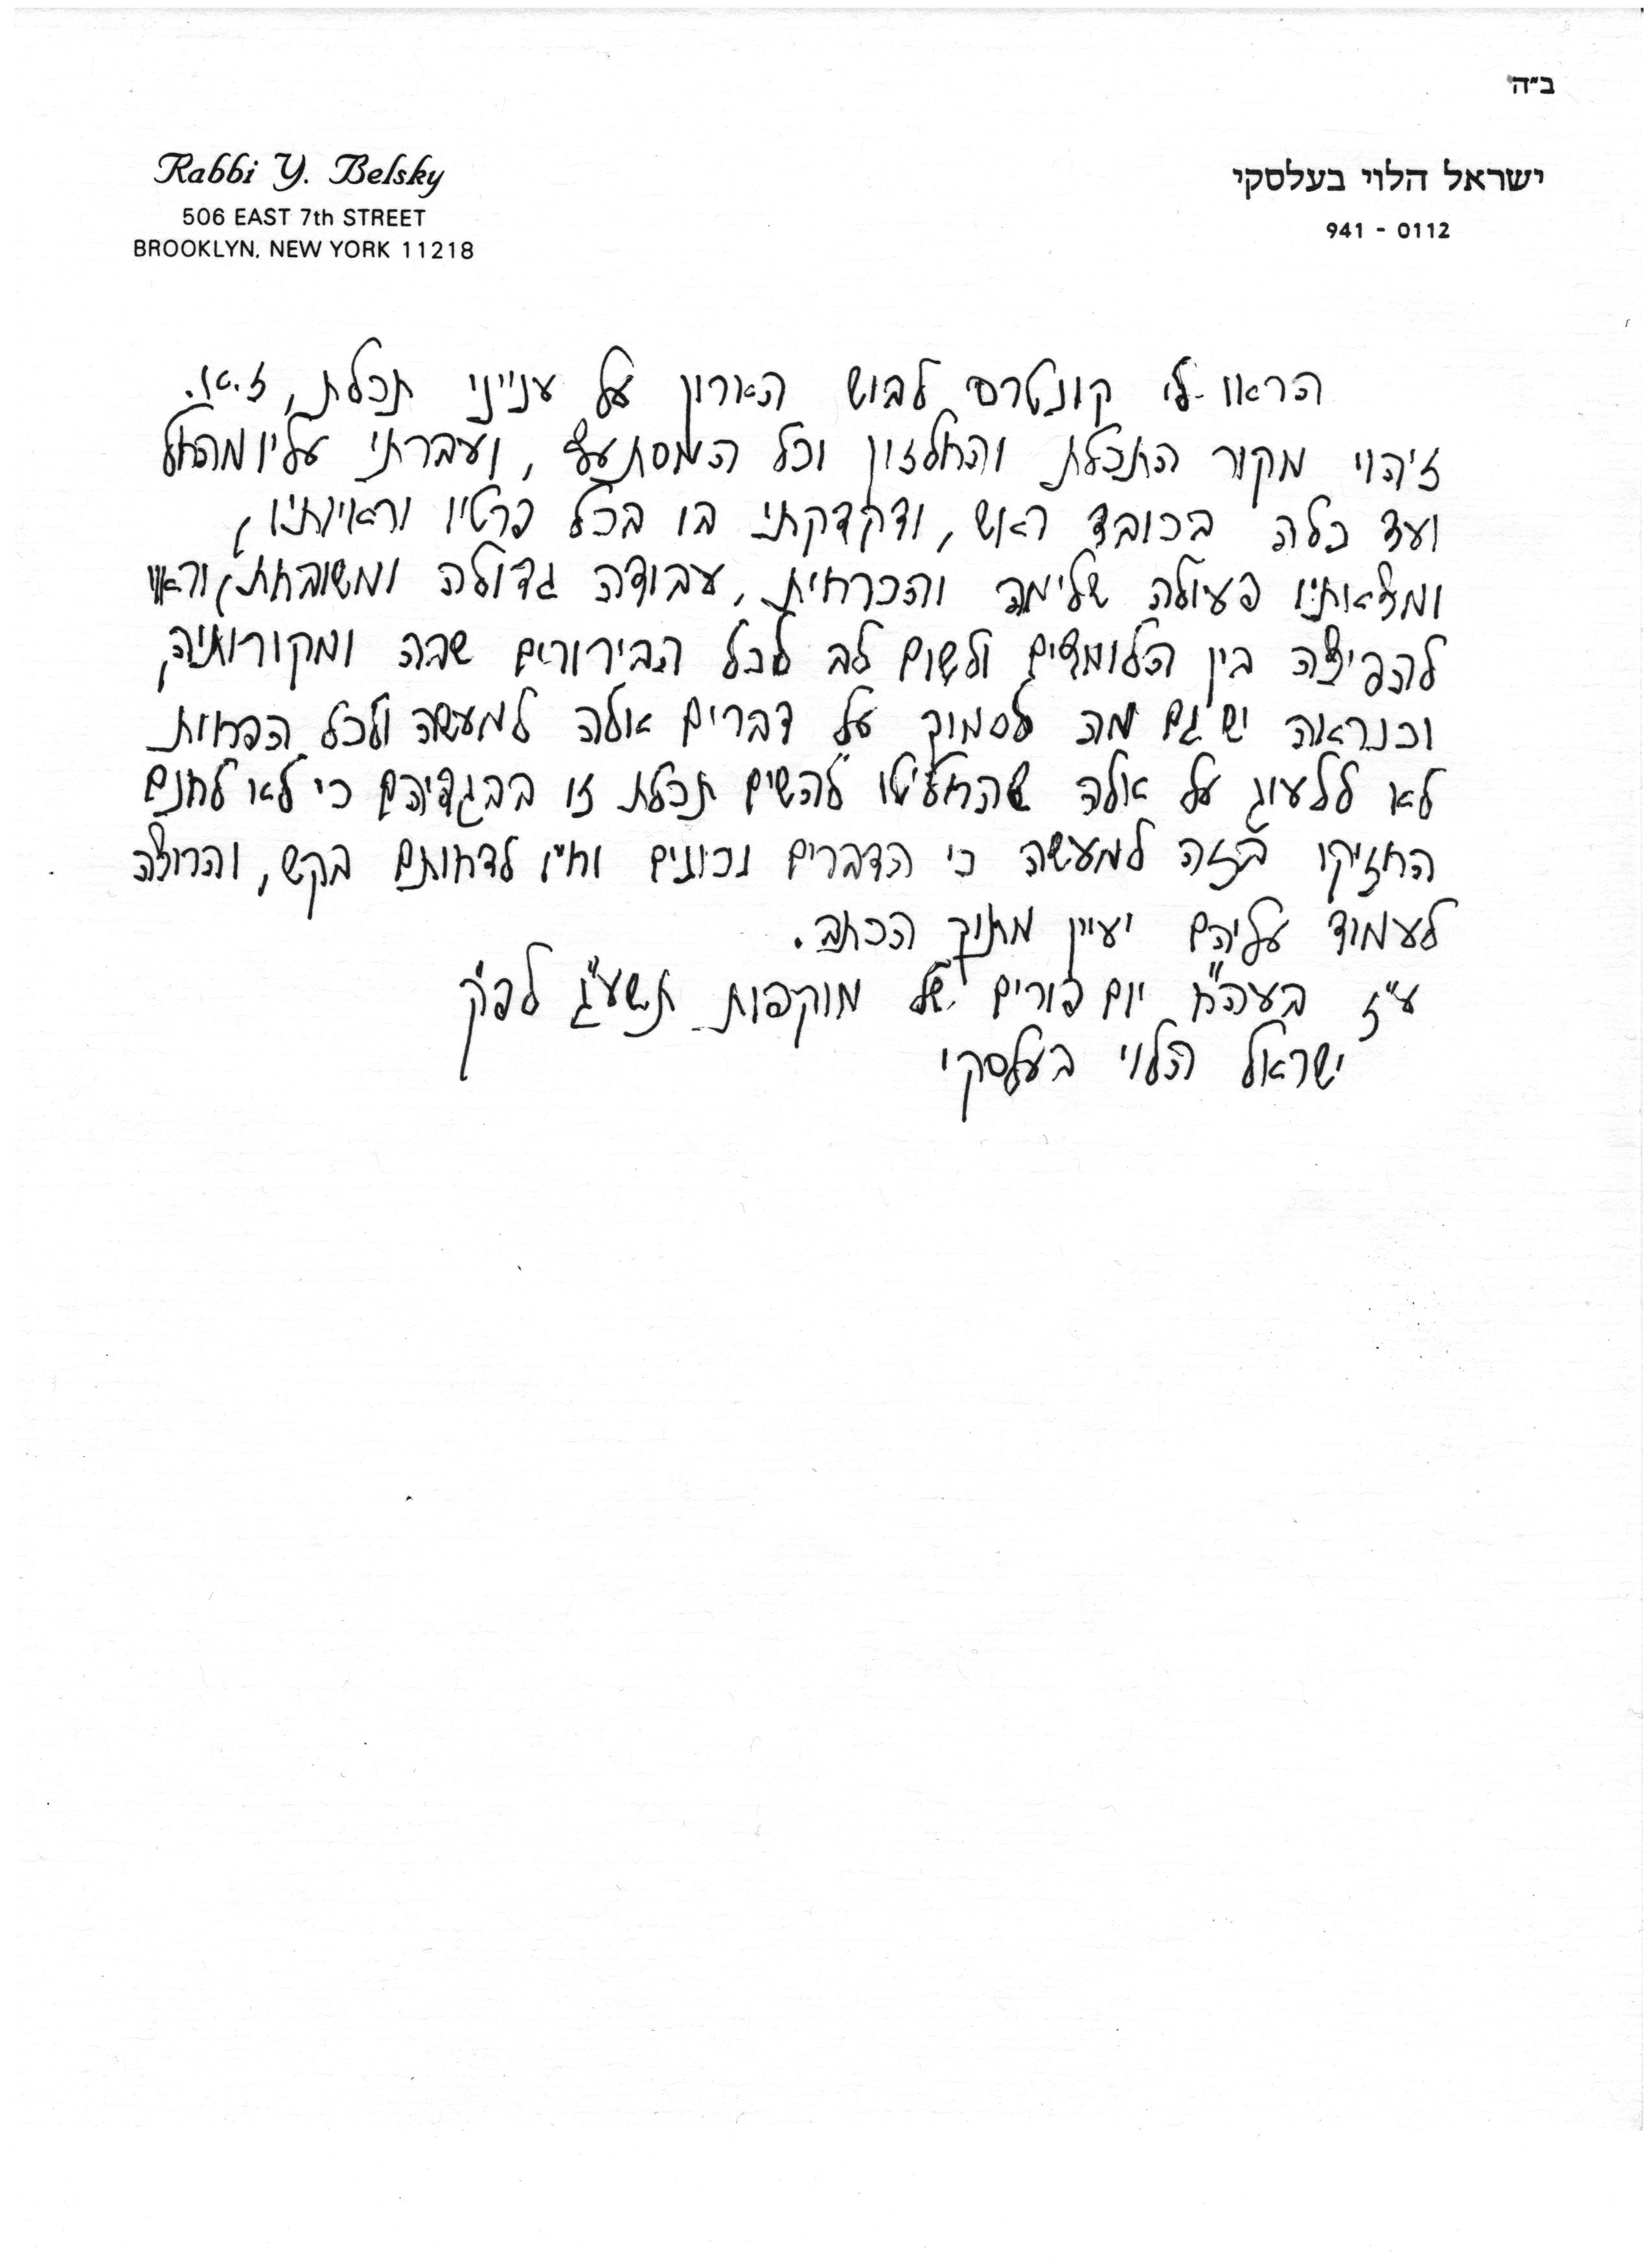 ב"ה
Rabbi Y. Belsky
506 EAST 7th STREET
BROOKLYN, NEW YORK 11218
ישראל הלוי בעלסקי
941 - 0112
הראו לי קונטרס לבוש הארון על ענייני תכלת, ז.א.
זיהוי מקור התכלת והחלזון וכל המסתעף, ועברתי עליו מהחל
ועד כלה בכובד ראש, ודקדקתי בו בכל פרטיו וראיותיו,
ומצאותיו פעולה שלימה והכרחית, עבודה גדולה ומשובחת, וראוי
להפיצה בין הלומדים ולשום לב לכל הבירורים שבה ומקורותיה,
וכנראה יש גם מה לסמוך על דברים אולה למעשה ולכל הפחות
לא ללעוג על אולה שהחליטו להשים תכלת זו בבגדיהם כי לא לחנם
החזיקו בזה למעשה כי הדברים נכונים וח"ו לדחותם בקש, והרוצה
לעמוד עליהם יעיין מתוך הכתב.
ע"ז בעה"ח יום פורים של מוקפות תשע"ג לפ"ק
ישראל הלוי בעלסקי